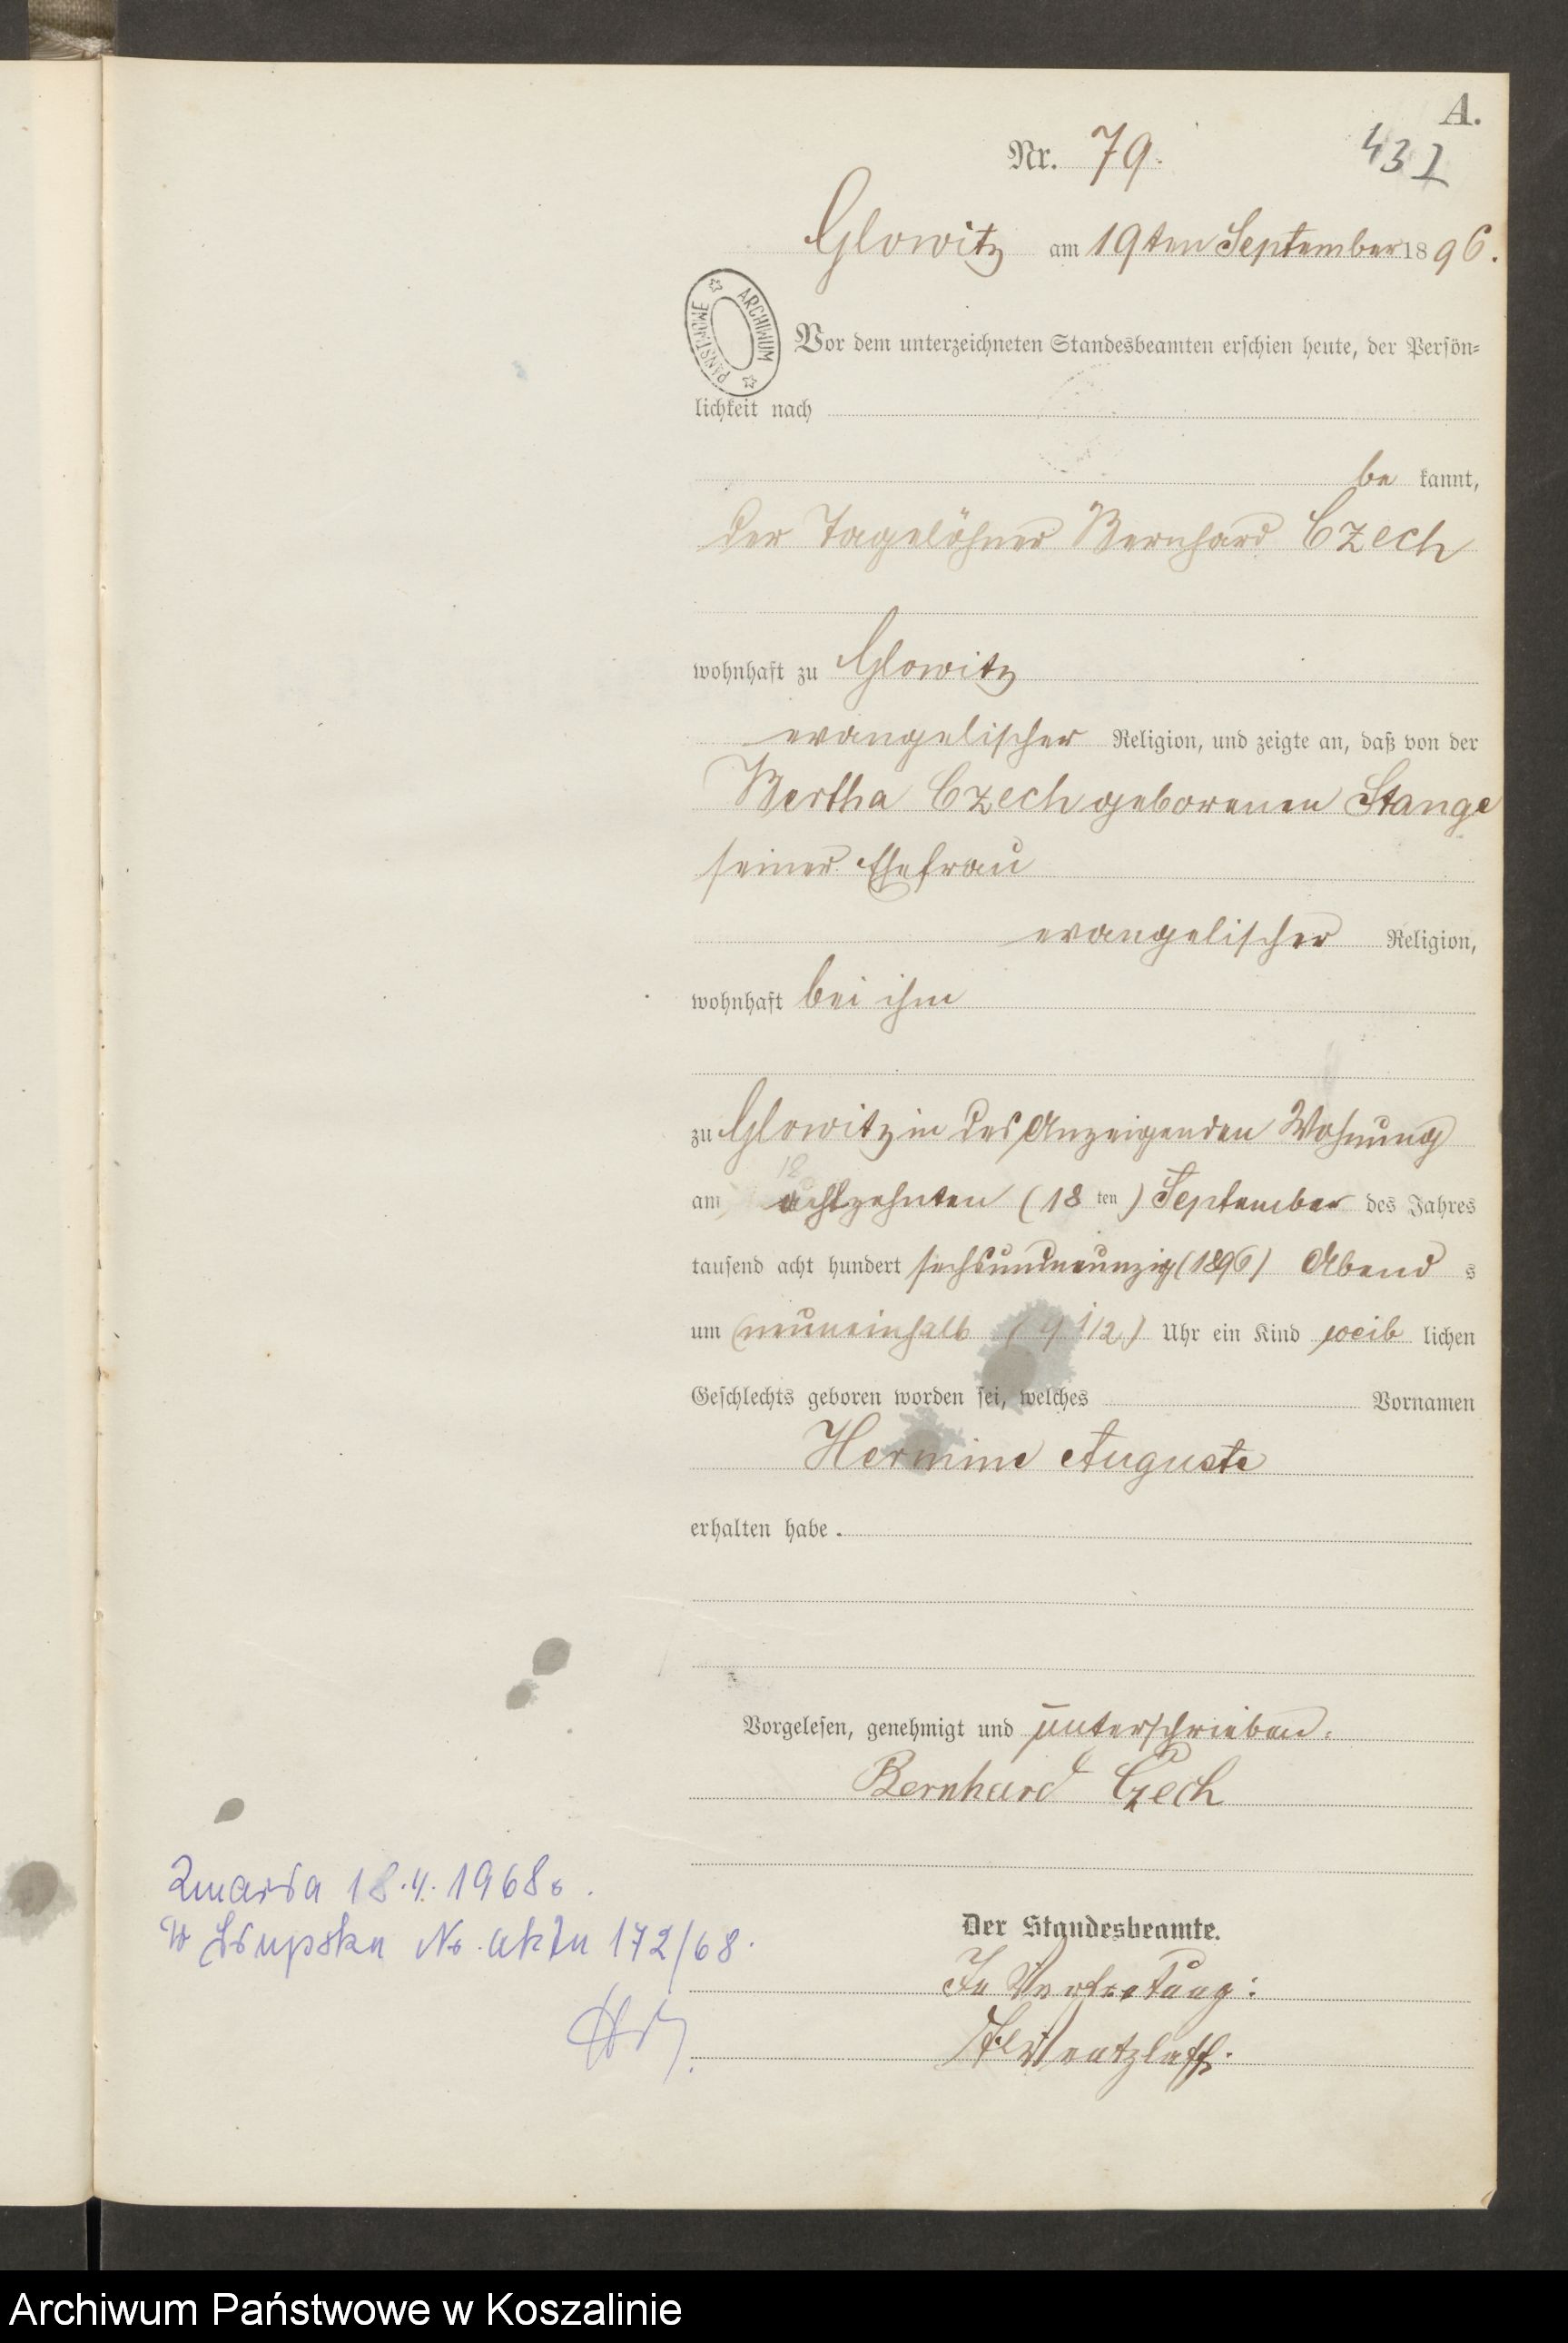 A.
Nr. 79.
432
Glowitz am 19ten September 1896.
ARCHIWUM PAŃSTWOWE
Vor dem unterzeichneten Standesbeamten erschien heute, der Persön-
lichkeit nach
be kannt,
der Tagelöhner Bernhard Czech
wohnhaft zu Glowitz
evangelischer Religion, und zeigte an, daß von der
Bertha Czech geborenen Stange
seiner Ehefrau
evangelischer Religion,
wohnhaft bei ihm
zu Glowitz in des Anzeigenden Wohnung
18
am achtzehnten (18 ten) September des Jahres
tausend acht hundert sechsundneunzig (1896) Abend s
um neuneinhalb (9 1/2) Uhr ein Kind weib lichen
Geschlechts geboren worden sei, welches Vornamen
Hermine Auguste
erhalten habe.
Vorgelesen, genehmigt und unterschrieben.
Bernhard Czech
Zmarła 18.4.1968 r.
w Słupsku Nr. aktu 172/68.
Der Standesbeamte.
In Vertretung:
Wentzlaff.
Archiwum Państwowe w Koszalinie